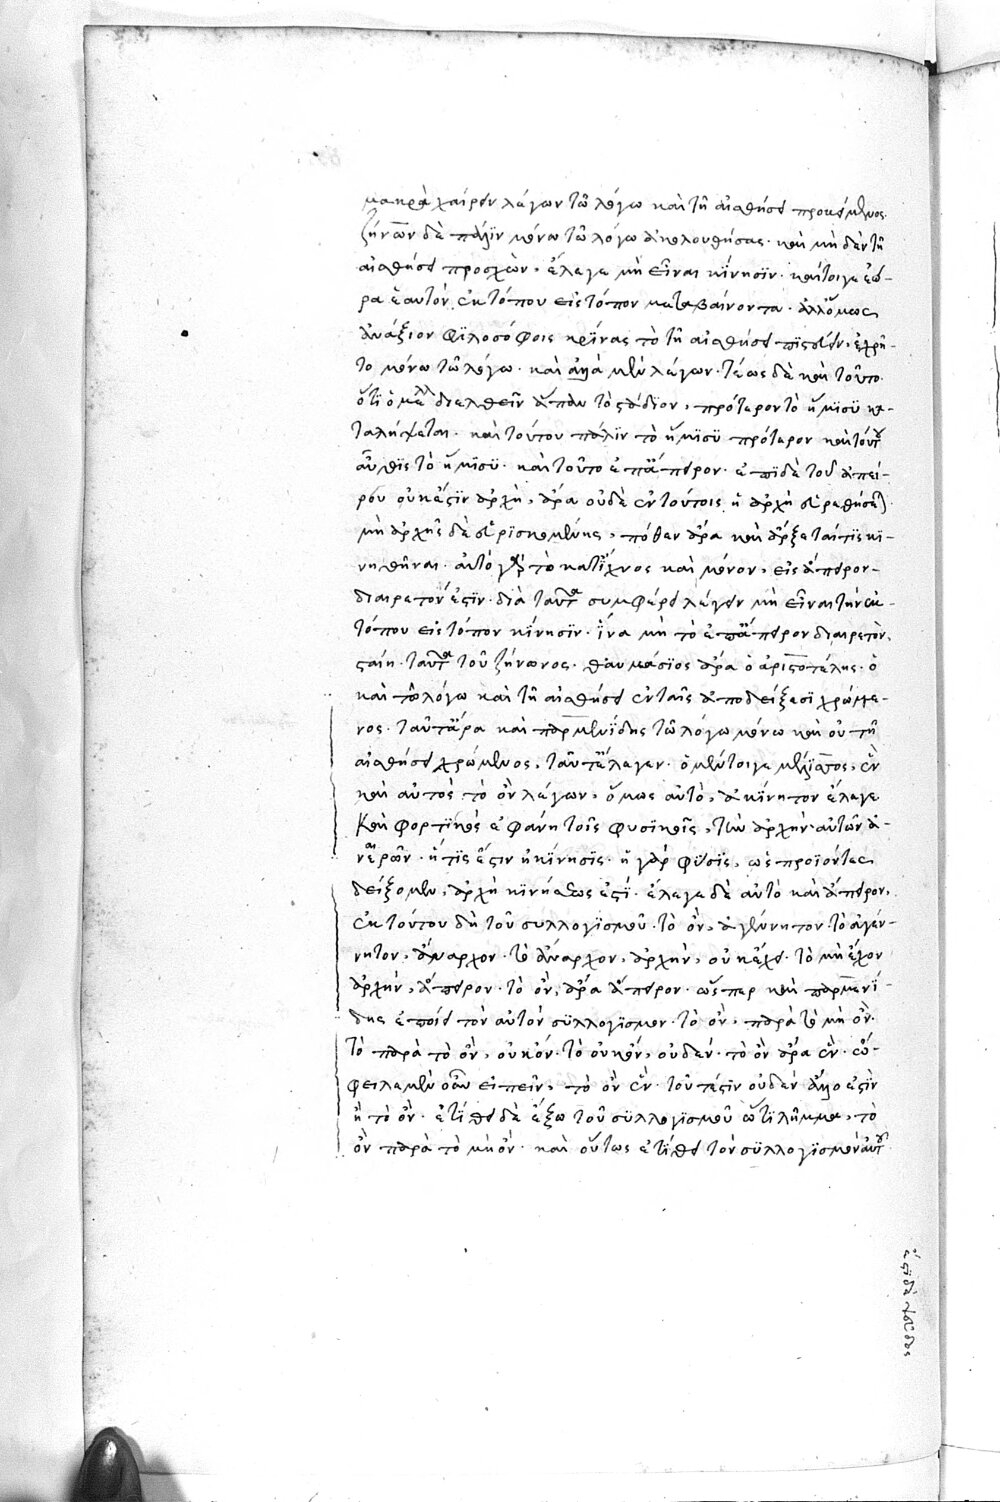 μακρὰ χαίρειν λέγων τῶ λόγω καὶ τῆ αἰσθήσει προσέμενος.
ζήνων δὲ πάλιν μόνω τῶ λόγω ἀκολουθήσας· καὶ μηδὲν τῆ
αἰσθήσει προσχὼν, ἔλεγε μὴ εἶναι κίνησϊν· καίτοιγε ἑώ-
ρα ἑαυτὸν ἐκ τόπου εἰς τόπον μεταβαίνοντα· ἀλλ' ὅμως
ἀνάξιον φϊλοσόφοις κρίνας τὸ τῆ αἰσθήσει πϊστεύειν, ἐχρῆ-
το μόνω τῶ λόγω· καὶ ἄλλα μὲν λέγων· τέως δὲ καὶ τοῦτο
ὅτι ὁ μέλλων διελθεῖν ἅπαν τὸ στάδϊον, πρότερον τὸ ἥμϊσϋ κα-
ταλήψεται· καὶ τούτου πάλϊν τὸ ἥμϊσϋ πρότερον καὶ τούτου
αὖθϊς τὸ ἥμϊσϋ· καὶ τοῦτο ἐπ' ἄπειρον· ἐπεὶ δὲ τοῦ ἀπεί-
ρου οὐκ ἔστϊν ἀρχὴ, ἄρα οὐδὲ ἐν τούτοις ἡ ἀρχὴ εὑρεθήσεται
μὴ ἀρχῆς δὲ εὑρϊσκομένης, πόθεν ἄρα καὶ ἄρξεταί τϊς κϊ-
νηθῆναι· αὐτὸ γὰρ τὸ κατ' ἴχνος καὶ μόνον, εἰς ἄπειρον
διαιρετόν ἐστϊν· διὰ ταῦτα συμφέρει λέγειν μὴ εἶναι τὴν ἐκ
τόπου εἰς τόπον κίνησϊν· ἵνα μὴ τὸ ἐπ' ἄπειρον διαιρετὸν,
σταίη· ταῦτα τοῦ ζήνωνος· θαυμάσϊος ἄρα ὁ ἀριστοτέλης· ὁ
καὶ τῶ λόγω καὶ τῆ αἰσθήσει ἐν ταῖς ἀποδείξεσϊ χρώμε-
νος· ταῦτ' ἄρα καὶ παρμενίδης τῶ λόγω μόνω καὶ οὐ τῆ
αἰσθήσει χρώμενος, ταῦτ' ἔλεγεν· ὁ μέντοιγε μέλισσος, ἓν
καὶ αὐτὸς τὸ ὂν λέγων, ὅμως αὐτὸ, ἀκίνητον ἔλεγε
καὶ φορτϊκὸς ἐφάνη τοῖς φυσϊκοῖς, τὴν ἀρχὴν αὐτῶν ἀ-
ναιρῶν· ἥτϊς ἔστιν ἡ κίνησϊς· ἡ γὰρ φύσϊς, ὡς προϊόντες
δείξομεν, ἀρχὴ κϊνήσεώς ἐστί· ἔλεγε δὲ αὐτὸ καὶ ἄπειρον,
ἐκ τούτου δὴ τοῦ συλλογϊσμοῦ· τὸ ὂν, ἀγένητον· τὸ ἀγέν-
νητον, ἄναρχον· τὸ ἄναρχον, ἀρχὴν, οὐκ ἔχει· τὸ μὴ ἔχον
ἀρχὴν, ἄπειρον· τὸ ὂν, ἄρα ἄπειρον· ὥσπερ καὶ παρμενί-
δης ἐποίει τὸν αὐτὸν σϋλλογϊσμον· τὸ ὂν, παρὰ τὸ μὴ ὂν·
τὸ παρὰ τὸ ὂν, οὐκ ὄν· τὸ οὐκ ὂν, οὐδέν· τὸ ὂν ἄρα ἕν· ὤ-
φειλε μὲν οὖν εἰπεῖν, τὸ ὂν ἕν· τουτέστϊν οὐδὲν ἄλλο ἐστὶν
ἢ τὸ ὂν· ἐτίθει δὲ ἔξω τοῦ σϋλλογϊσμοῦ ὥς τι λῆμμα, τὸ
ὂν παρὰ τὸ μὴ ὂν· καὶ οὕτως ἐτίθει τὸν σϋλλογϊσμὸν αὐτοῦ